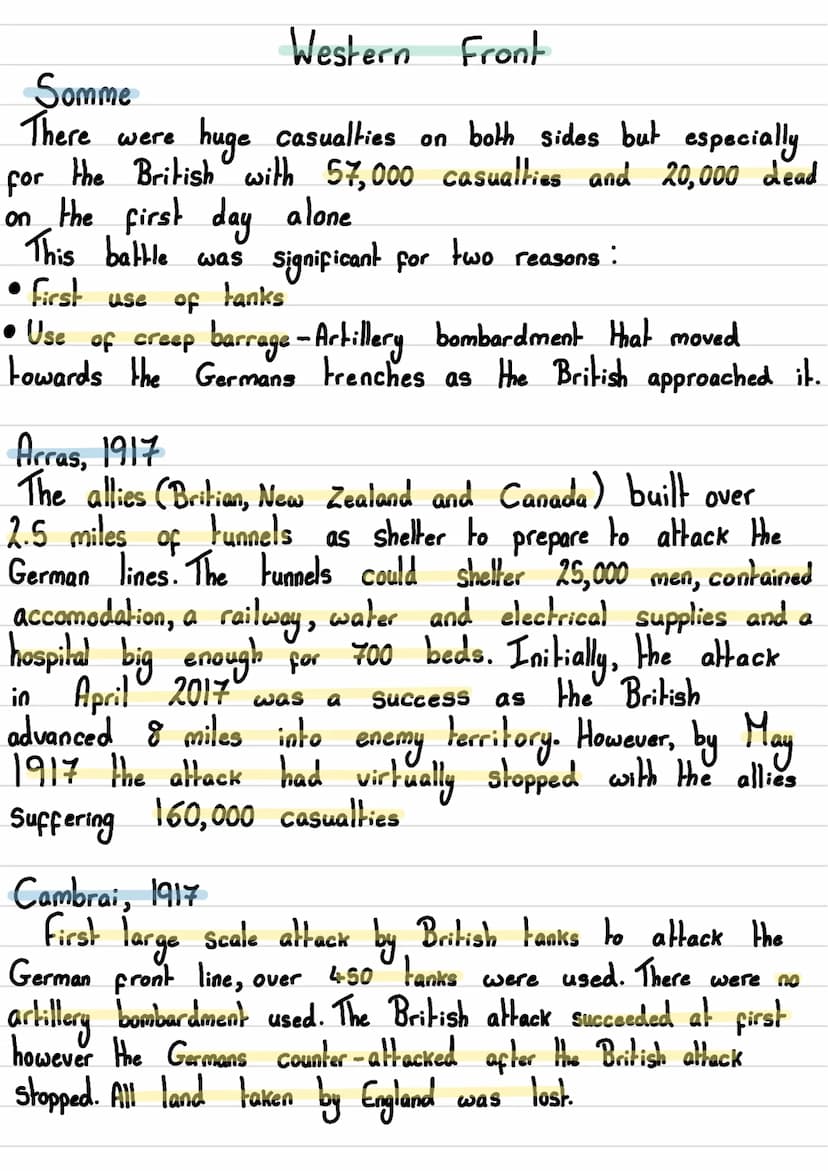 Western Front
Somme
There were huge casualties on both sides but especially
for the British with 57,000 casualties and 20,000 dead
on the first day alone
This battle was significant for two reasons :
• First use of tanks
• Use of creep barrage - Artillery bombardment that moved
towards the Germans trenches as the British approached it.
Arras, 1917
The allies (Britian, New Zealand and Canada) built over
2.5 miles of tunnels as shelter to prepare to attack the
German lines. The tunnels could shelter 25,000 men, contained
accomodation, a railway, water and electrical supplies and a
hospital big enough for 700 beds. Initially, the attack
in April 2017 was a success as the British
advanced 8 miles into enemy territory. However, by May
1917 the attack had virtually stopped with the allies
suffering 160,000 casualties
Cambrai, 1917
First large scale attack by British tanks to attack the
German front line, over 450 tanks were used. There were no
artillery bombardment used. The British attack succeeded at first
however the Germans counter-attacked after the British attack
stopped. All land taken by England was lost.